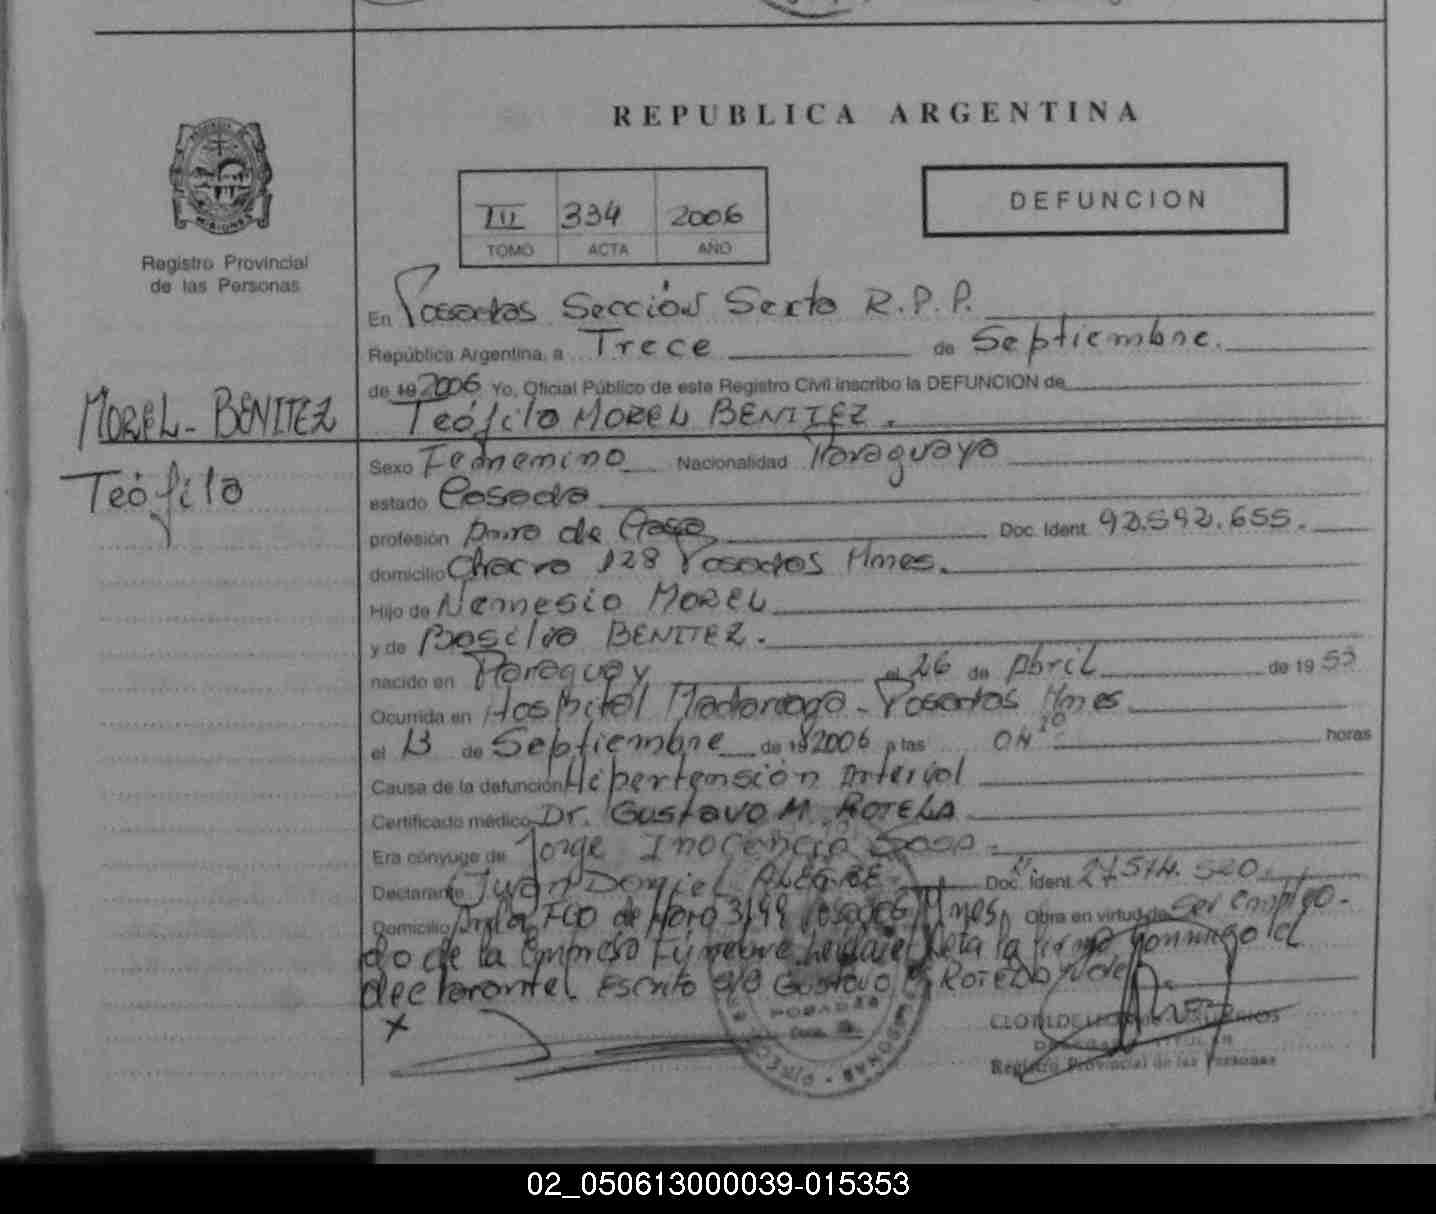 REPUBLICA ARGENTINA
III 334 2006
TOMO ACTA AÑO
DEFUNCION
Registro Provincial
de las Personas
MOREL - BENITEZ
Teófila
En Posadas Sección Sexta R.P.P.
República Argentina, a Trece de Septiembre.
de 19 2006 Yo, Oficial Público de este Registro Civil inscribo la DEFUNCION de
Teófila MOREL BENITEZ.
Sexo Femenino Nacionalidad Paraguaya
estado Casada
profesión Ama de Casa Doc. Ident. 92.592.655.
domicilio Chacra 128 Posadas Mnes.
Hijo de Nemesio MOREL
y de Basilia BENITEZ.
nacido en Paraguay el 26 de Abril de 19 53
Ocurrida en Hospital Madariaga - Posadas Mnes
el 13 de Septiembre de 19 2006 a las 04 20 horas
Causa de la defunción Hipertensión Arterial
Certificado médico Dr. Gustavo M. ROTELA
Era cónyuge de Jorge Inocencio Sosa.
Declarante Juan Daniel ALEGRE Doc. Ident. 27.574.520.
Domicilio Avda Fco de Haro 3199 Posadas Mnes, Obra en virtud de Ser emplea-
do de la empresa Fúnebre la firma conmigo el
declarante. Escrito Gustavo ROTELA vale
x
POSADAS
Registro Provincial de las Personas
02_050613000039-015353